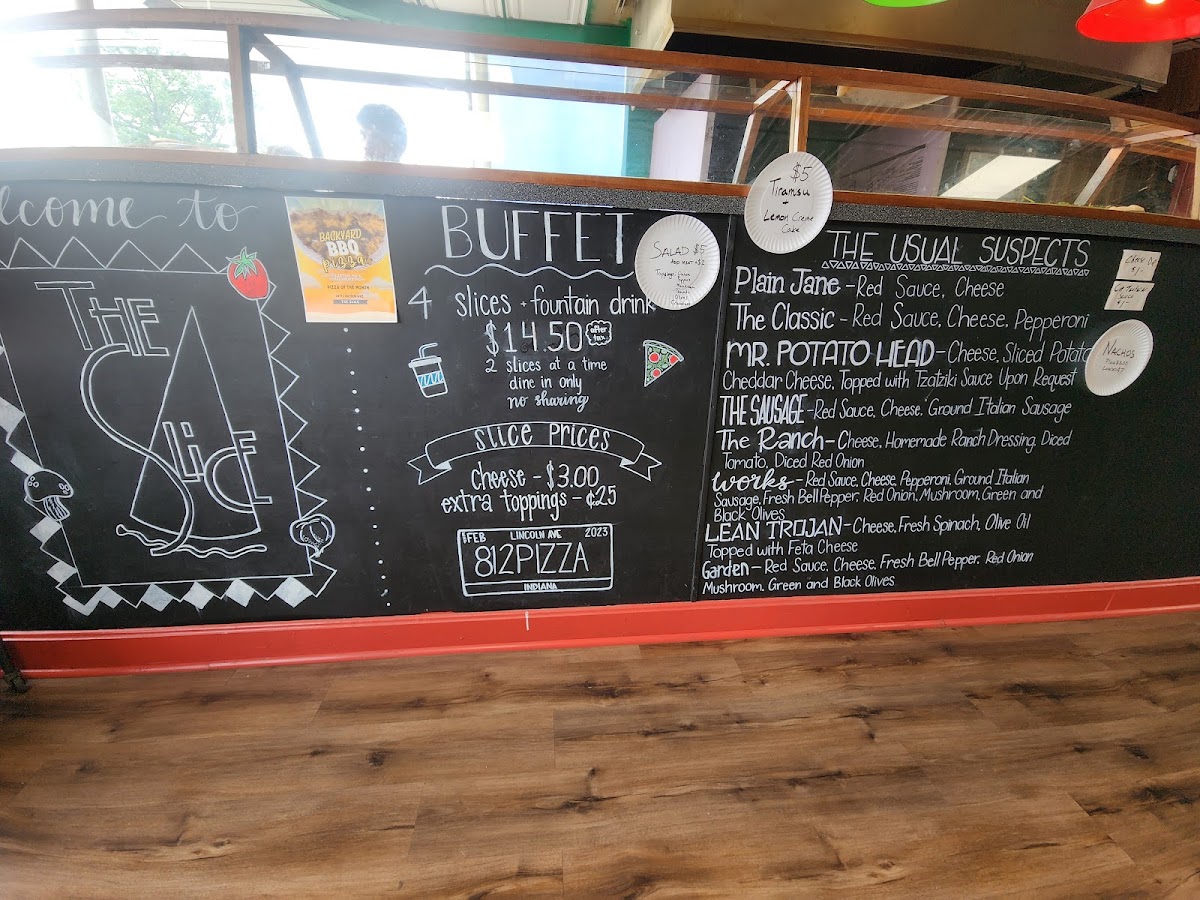 lcome to
THE
SLiCE
BACKYARD
BBQ
pizza
PIZZA OF THE MONTH
BUFFET
4 slices + fountain drink
$14.50 after tax
2 slices at a time
dine in only
no sharing
slice prices
cheese - $3.00
extra toppings - ¢25
FEB LINCOLN AVE 2023
812PIZZA
INDIANA
SALAD $5
$5
Tiramisu
+
Lemon Creme
Cake
THE USUAL SUSPECTS
Plain Jane - Red Sauce, Cheese
The Classic - Red Sauce, Cheese, Pepperoni
MR. POTATO HEAD - Cheese, Sliced Potato
Cheddar Cheese, Topped with Tzatziki Sauce Upon Request
THE SAUSAGE - Red Sauce, Cheese, Ground Italian Sausage
The Ranch - Cheese, Homemade Ranch Dressing, Diced
Tomato, Diced Red Onion
Works - Red Sauce, Cheese, Pepperoni, Ground Italian
Sausage, Fresh Bell Pepper, Red Onion, Mushroom, Green and
Black Olives
LEAN TROJAN - Cheese, Fresh Spinach, Olive Oil
Topped with Feta Cheese
Garden - Red Sauce, Cheese, Fresh Bell Pepper, Red Onion
Mushroom, Green and Black Olives
NACHOS